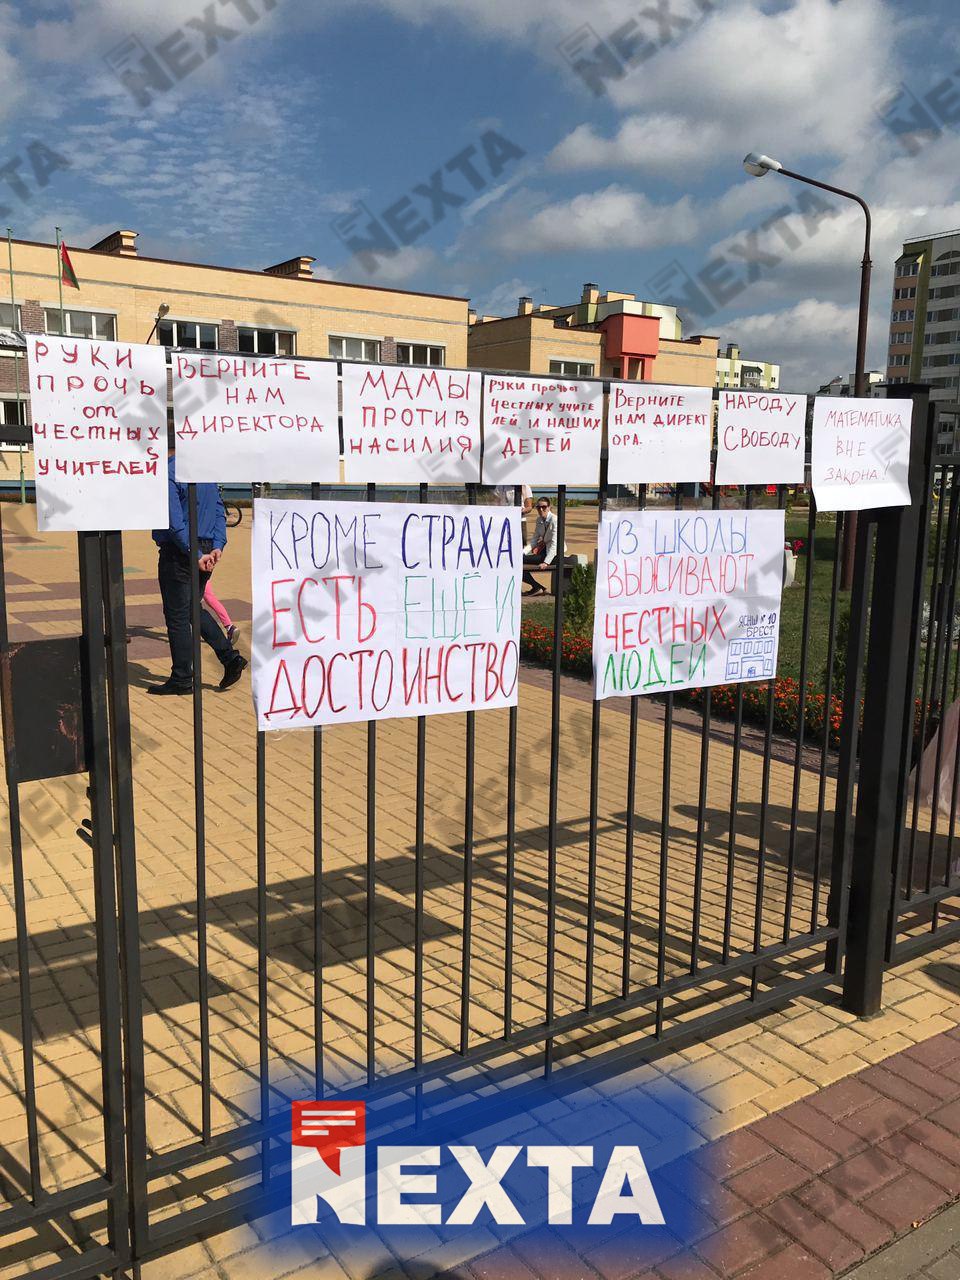 РУКИ
ПРОЧЬ
от
ЧЕСТНЫХ
УЧИТЕЛЕЙ
ВЕРНИТЕ
НАМ
ДИРЕКТОРА
МАМЫ
ПРОТИВ
НАСИЛИЯ
РУКИ ПРОЧЬ ОТ
ЧЕСТНЫХ УЧИТЕ
ЛЕЙ И НАШИХ
ДЕТЕЙ
ВЕРНИТЕ
НАМ ДИРЕКТ
ОРА.
НАРОДУ
СВОБОДУ
МАТЕМАТИКА
ВНЕ
ЗАКОНА!
КРОМЕ СТРАХА
ЕСТЬ ЕЩЁ И
ДОСТОИНСТВО
ИЗ ШКОЛЫ
ВЫЖИВАЮТ
ЧЕСТНЫХ
ЛЮДЕЙ
ЯСЛИ №10
БРЕСТ
NEXTA